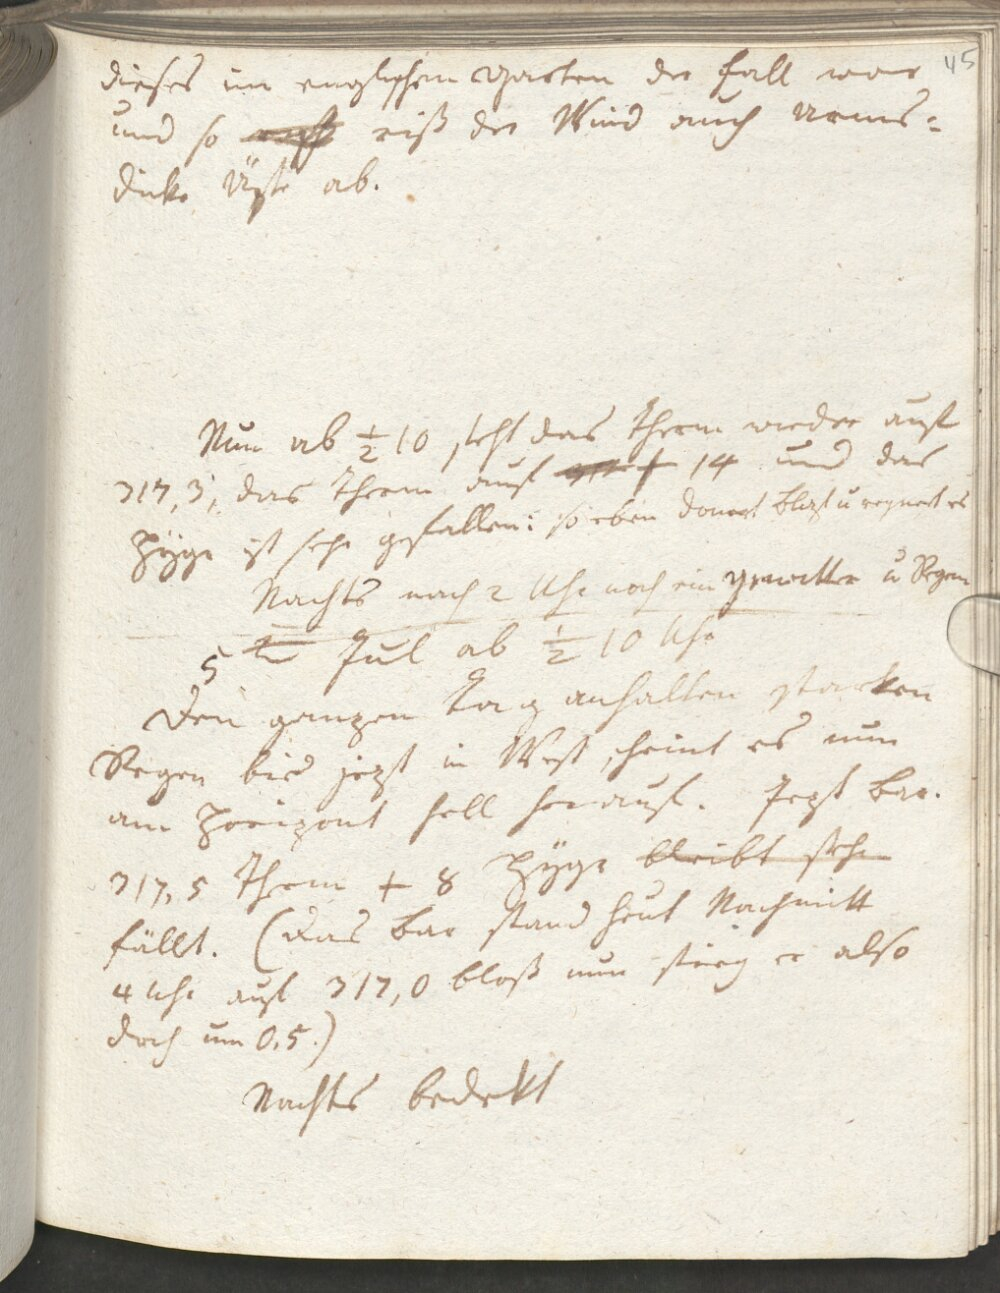 45
dieses im englischen Garten der Fall war
und so riß der Wind auch Arms-
dicke Äste ab.
Nun ab ½ 10 steht das Therm wieder auf
317,3, das Therm auf + 14 und das
Hygr ist sehr gefallen: so eben donert blizt u regnet es
Nachts nach 2 Uhr noch ein Gewitter u Regen
5 te Jul ab ½ 10 Uhr
Den ganzen Tag anhalten starken
Regen bis jezt in West scheint es nun
am Horizont hell herauf. Jezt Bar.
317,5 Therm + 8 Hygr bleibt steh
fällt. (Das Bar stand heut Nachmitt
4 Uhr auf 317,0 bloß nun stieg er also
doch um 0,5.)
Nachts bedekt